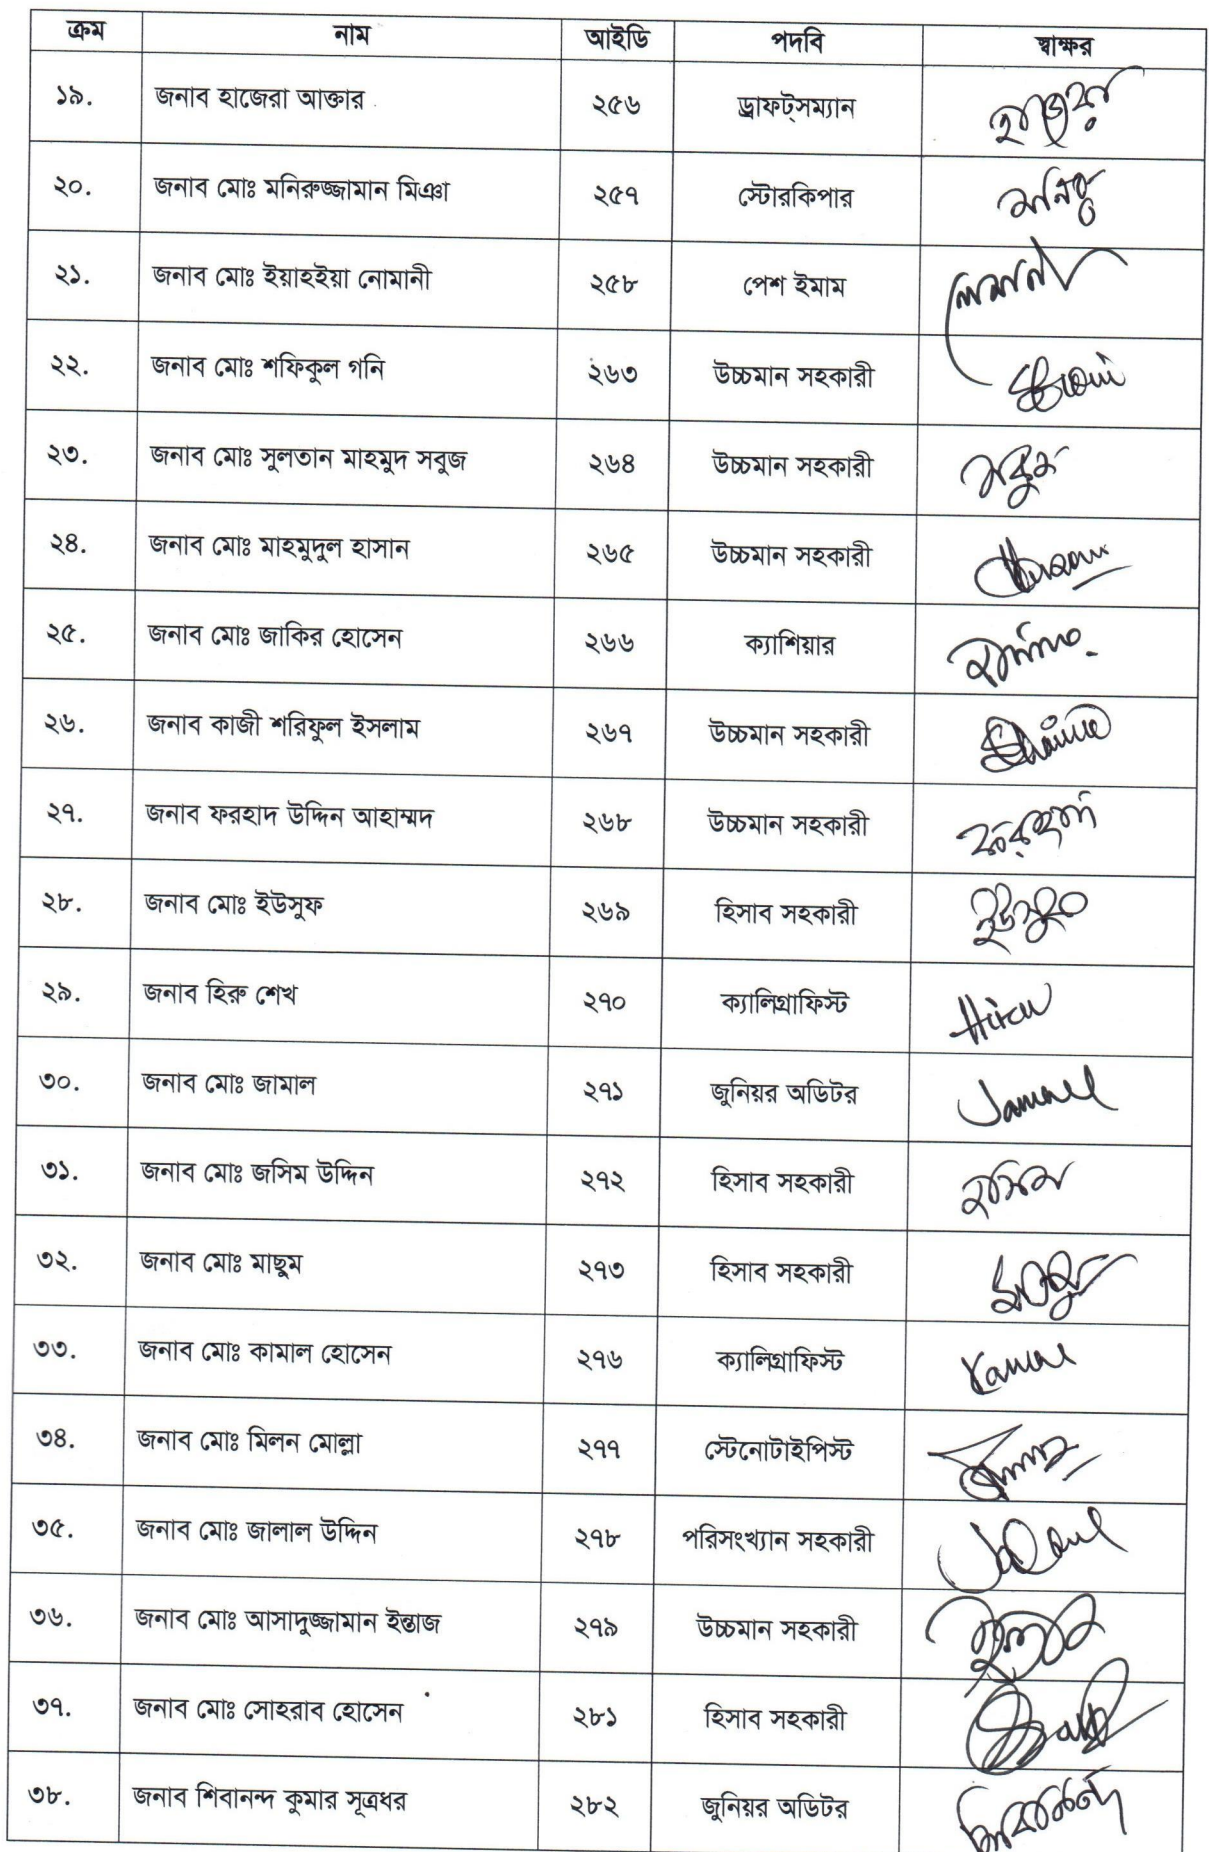 ক্রম নাম আইডি পদবি স্বাক্ষর
১৯. জনাব হাজেরা আক্তার ২৫৬ ড্রাফট্সম্যান হাজেরা
২০. জনাব মোঃ মনিরুজ্জামান মিঞা ২৫৭ স্টোরকিপার মনিরু
২১. জনাব মোঃ ইয়াহইয়া নোমানী ২৫৮ পেশ ইমাম
২২. জনাব মোঃ শফিকুল গনি ২৬৩ উচ্চমান সহকারী
২৩. জনাব মোঃ সুলতান মাহমুদ সবুজ ২৬৪ উচ্চমান সহকারী সবুজ
২৪. জনাব মোঃ মাহমুদুল হাসান ২৬৫ উচ্চমান সহকারী
২৫. জনাব মোঃ জাকির হোসেন ২৬৬ ক্যাশিয়ার
২৬. জনাব কাজী শরিফুল ইসলাম ২৬৭ উচ্চমান সহকারী
২৭. জনাব ফরহাদ উদ্দিন আহাম্মদ ২৬৮ উচ্চমান সহকারী ফরহাদ
২৮. জনাব মোঃ ইউসুফ ২৬৯ হিসাব সহকারী ইউসুফ
২৯. জনাব হিরু শেখ ২৭০ ক্যালিগ্রাফিস্ট Hiru
৩০. জনাব মোঃ জামাল ২৭১ জুনিয়র অডিটর Jamal
৩১. জনাব মোঃ জসিম উদ্দিন ২৭২ হিসাব সহকারী জসিম
৩২. জনাব মোঃ মাছুম ২৭৩ হিসাব সহকারী
৩৩. জনাব মোঃ কামাল হোসেন ২৭৬ ক্যালিগ্রাফিস্ট Kamal
৩৪. জনাব মোঃ মিলন মোল্লা ২৭৭ স্টেনোটাইপিস্ট
৩৫. জনাব মোঃ জালাল উদ্দিন ২৭৮ পরিসংখ্যান সহকারী Jalal
৩৬. জনাব মোঃ আসাদুজ্জামান ইন্তাজ ২৭৯ উচ্চমান সহকারী
৩৭. জনাব মোঃ সোহরাব হোসেন ২৮১ হিসাব সহকারী
৩৮. জনাব শিবানন্দ কুমার সূত্রধর ২৮২ জুনিয়র অডিটর শিবানন্দ